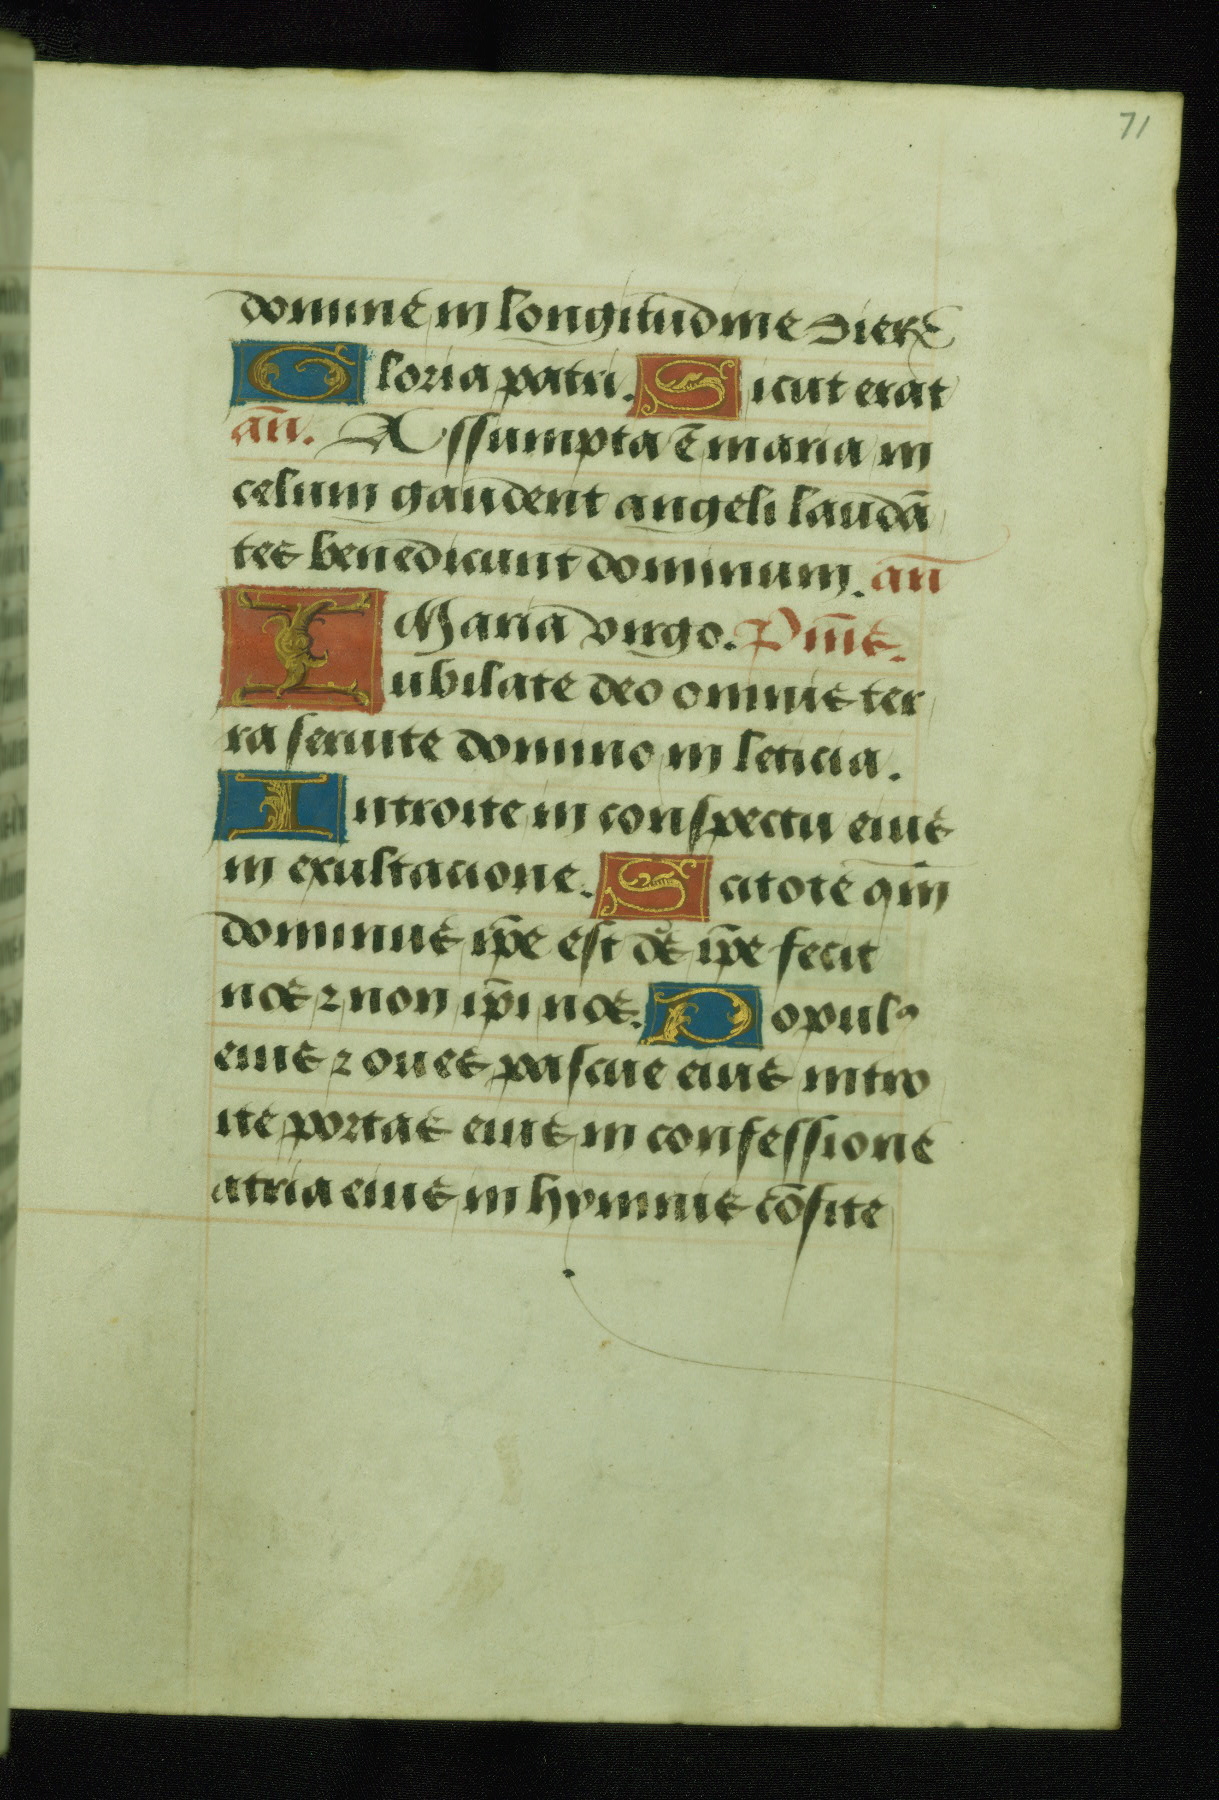 71
domine in longitudine dierꝝ
Gloria patri. Sicut erat
an̄. Assumpta ē maria in
celum gaudent angeli laudā
tes benedicunt dominum. an̄
Maria virgo. Psm̄s.
Iubilate deo omnis ter
ra seruite domino in leticia.
Introite in conspectu eius
in exultacione. Scitote qm̄
dominus ip̄e est ds̄ ip̄e fecit
nos ⁊ non ip̄i nos. Populꝰ
eius ⁊ oues pascue eius intro
ite portas eius in confessione
atria eius in hymnis cōfite